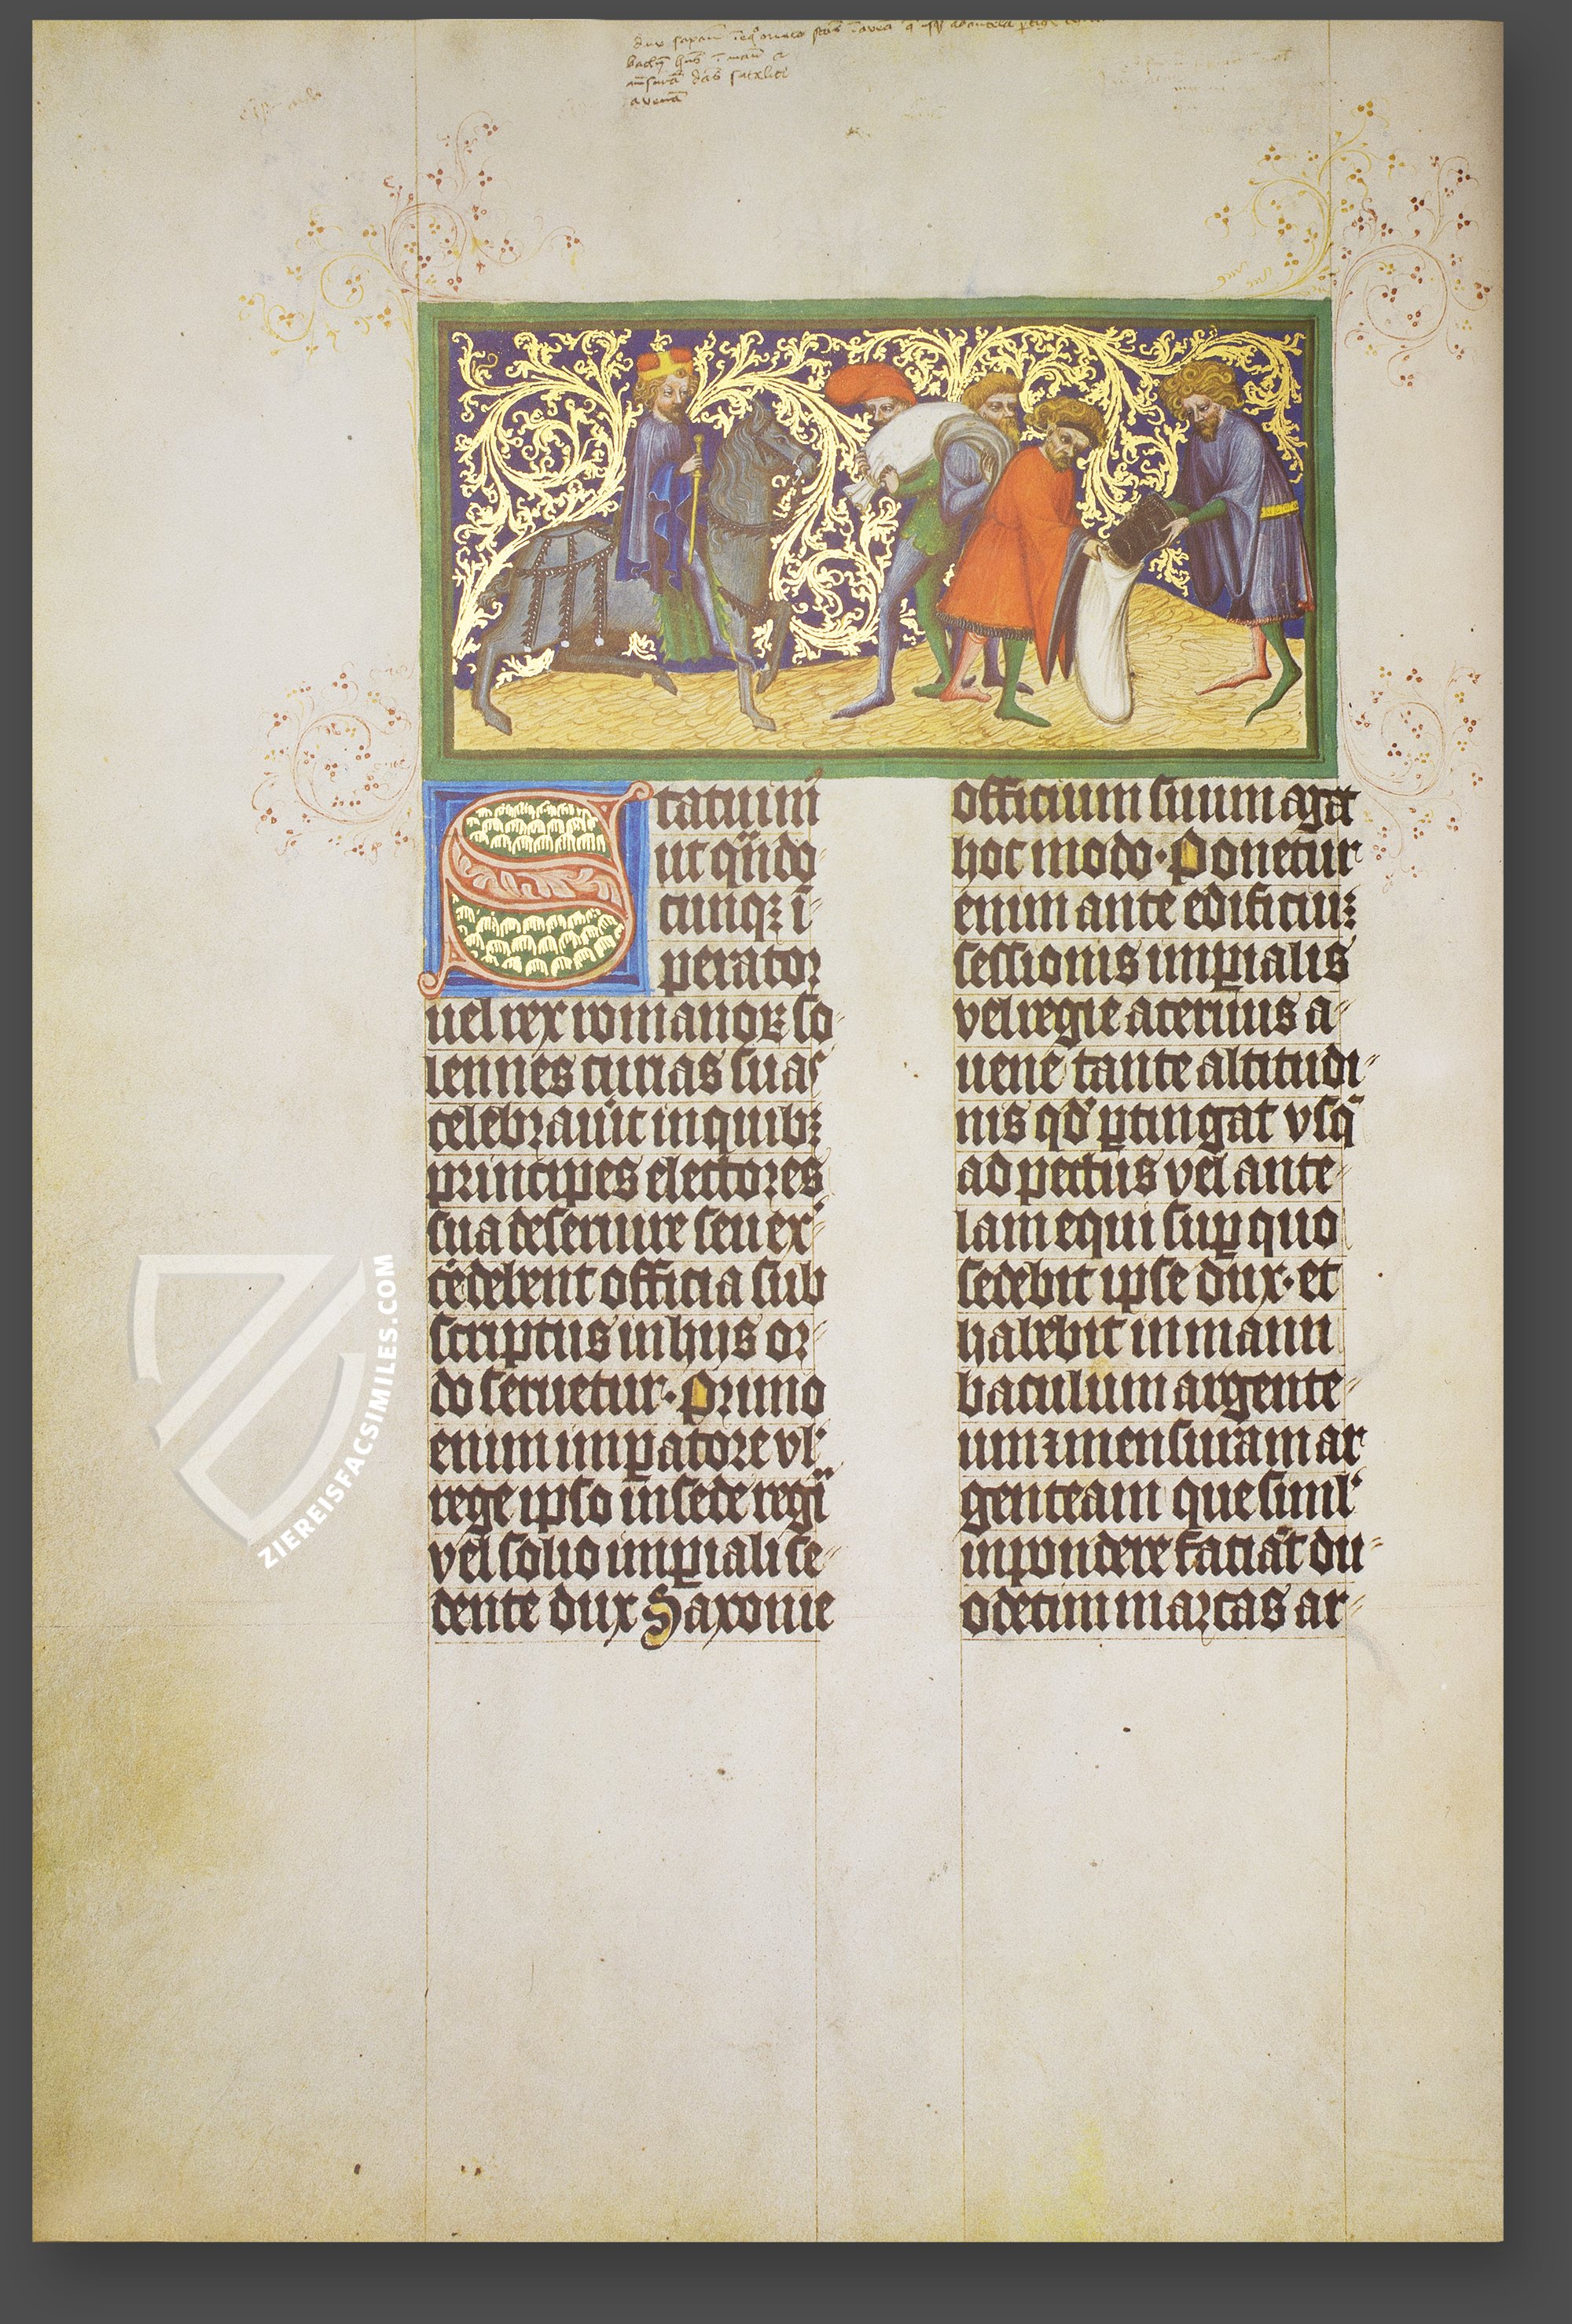 Statuim᷒
ut qn̄do
cunqꝫ ī
perator
uel rex romanoꝝ so
lennes curias suas
celebrauit̉ in quibꝫ
principes electores
sua deseruire seu ex
c̉ēdebent officia sub
scriptus in hijs or
do seruetur · Primo
enim imꝑatore vl̉
rege ipso in sede regī
vel solio imꝑiali se
dente dux Saxonie
officium suum agat
hoc modo · Ponetur
enim ante edificiuꝫ
sessionis imꝑialis
vel regie aceruus a
uene tante altitudi
nis qd̉ ꝑtingat vsqꝫ
ad pectus vel ante
lam equi suꝑ quo
sedebit ipse dux · et
habebit in manu
baculum argente
um ⁊ mensuram ar
genteam que siml̉
in pondere faciāt du
odecim marcas ar
ZIEREISFACSIMILES.COM